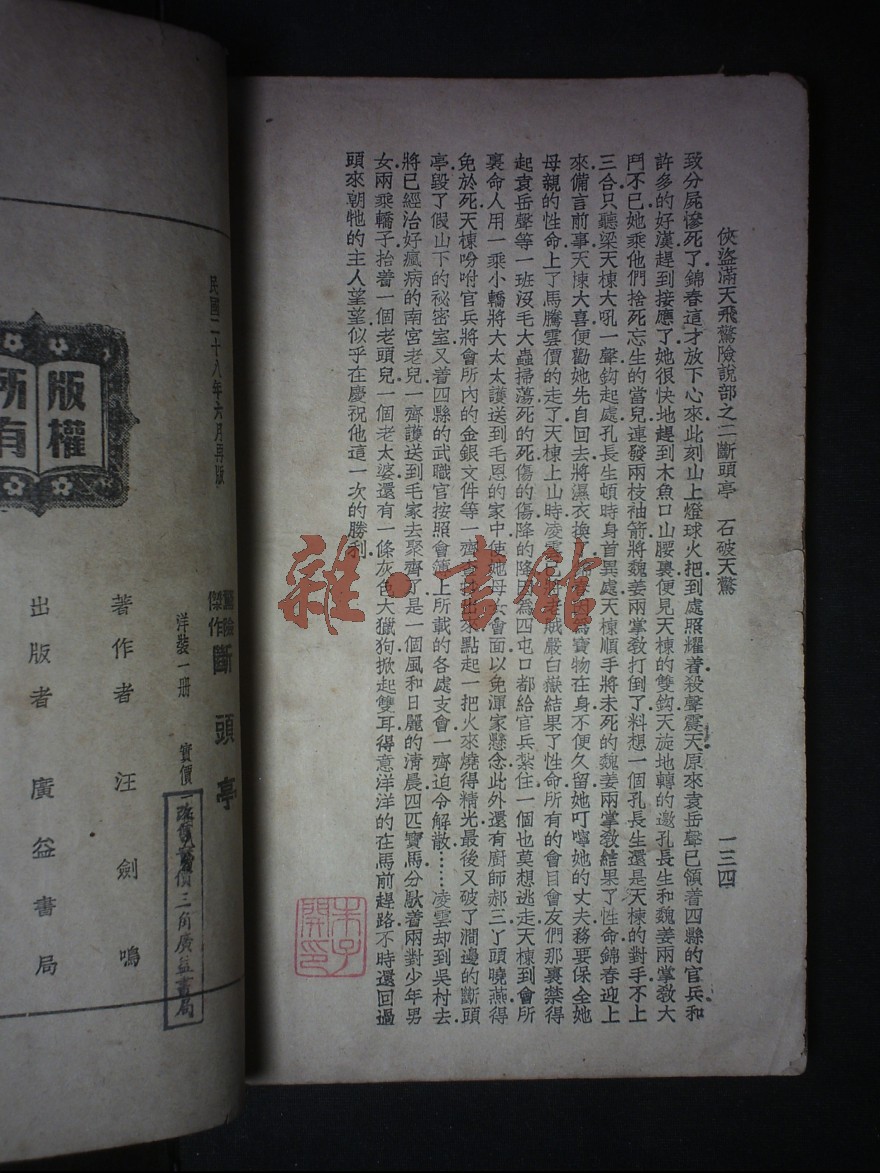 俠盜滿天飛驚險說部之二斷頭亭 石破天驚 一三四
致分屍慘死了錦春這才放下心來此刻山上燈球火把到處照耀着殺聲震天原來袁岳聲已領着四縣的官兵和
許多的好漢趕到接應了她很快地趕到木魚口山腰裏便見天棟的雙鈎天旋地轉的邀孔長生和魏姜兩掌教大
鬥不已她乘他們捨死忘生的當兒連發兩枝袖箭將魏姜兩掌教打倒了料想一個孔長生還是天棟的對手不上
三合只聽梁天棟大吼一聲鈎起處孔長生頓時身首異處天棟順手將未死的魏姜兩掌教結果了性命錦春迎上
來備言前事天棟大喜便勸她先自回去將濕衣換
因為寶物在身不便久留她叮嚀她的丈夫務要保全她
母親的性命上了馬騰雲價的走了天棟上山時凌雲已
老賊嚴白嶽結果了性命所有的會目會友們那裏禁得
起袁岳聲等一班沒毛大蟲掃蕩死的死傷的傷降的降
因為四屯口都給官兵紮住一個也莫想逃走天棟到會所
裏命人用一乘小轎將大太太護送到毛恩的家中使她母女會面以免渾家懸念此外還有廚師郝三丫頭曉燕得
免於死天棟吩咐官兵將會所內的金銀文件等一齊
出來點起一把火來燒得精光最後又破了澗邊的斷頭
亭毀了假山下的祕密室又着四縣的武職官按照會簿上所載的各處支會一齊迫令解散……凌雲却到吳村去
將已經治好瘋病的南宮老兒一齊護送到毛家去聚齊了是一個風和日麗的清晨四匹寶馬分馱着兩對少年男
女兩乘轎子抬着一個老頭兒一個老太婆還有一條灰色大獵狗掀起雙耳得意洋洋的在馬前趕路不時還回過
頭來朝牠的主人望望似乎在慶祝他這一次的勝利
雜·書館
民國二十八年六月再版
驚險傑作 斷頭亭
洋裝一册 實價
價三角廣益書局
著作者 汪劍鳴
出版者 廣益書局
版權所有